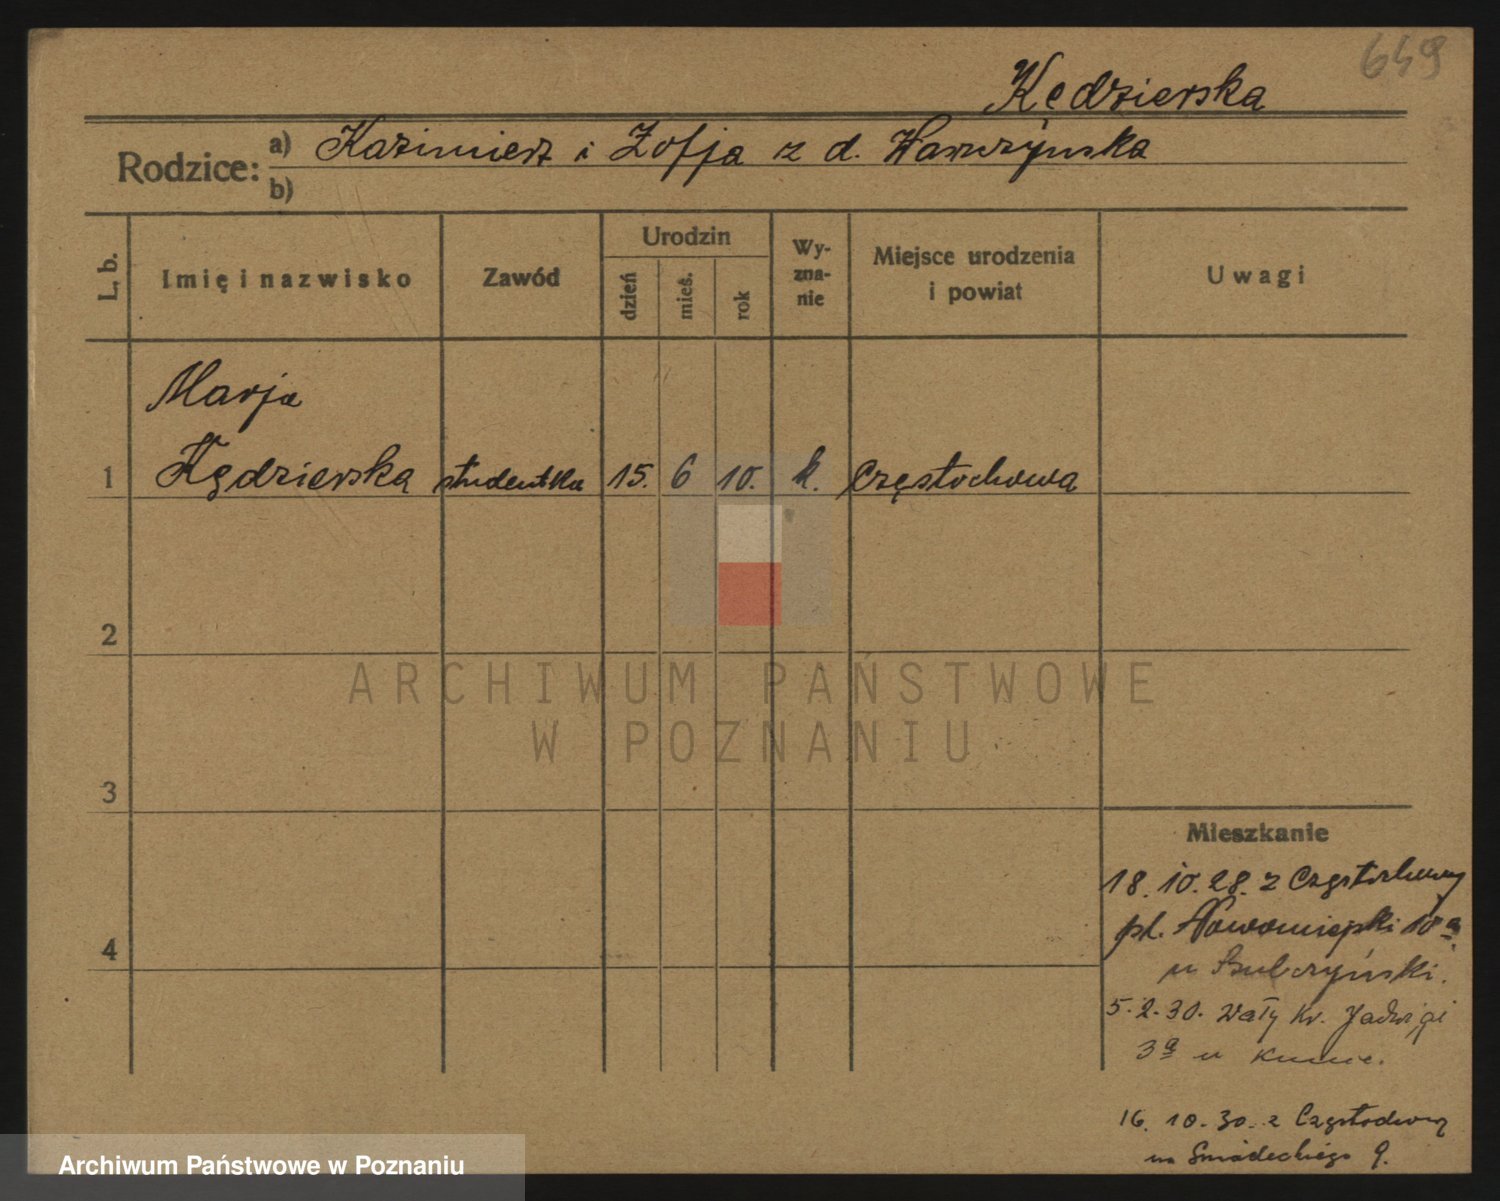 649
Kędzierska
Rodzice: a) Kazimierz i Zofja z d. Wawrzyńska
b)
L. b.
Imię i nazwisko
Zawód
Urodzin
dzień
mieś.
rok
Wy-
zna-
nie
Miejsce urodzenia
i powiat
Uwagi
Marja
1 Kędzierska studentka 15. 6 10. k. Częstochowa
2
ARCHIWUM PAŃSTWOWE
W POZNANIU
3
Mieszkanie
18. 10. 28. z Częstochowy
pl. Nowomiejski 10a
u
4
5. 2. 30. Wały Kr. Jadwigi
3a u
16. 10. 30. z Częstochowy
na Śniadeckiego 9.
Archiwum Państwowe w Poznaniu